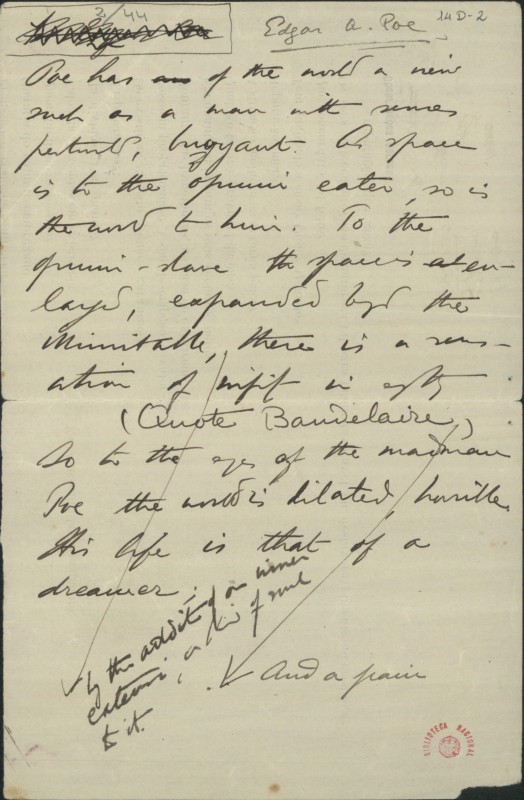 3/44
14 D-2
Edgar A. Poe
Poe has of the world a view
such as a man with senses
perturbed, buoyant. As space
is to the opium eater, so is
the world to him. To the
opium-slave the space is en-
larged, expanded beyond the
illimitable, there is a sens-
ation of in
(Quote Baudelaire)
So to the eyes of the madman
Poe the world is dilated, horrible.
His life is that of a
dreamer;
by the addition of an inner
, a kind of soul
to it.
And a pain
BIBLIOTECA NACIONAL